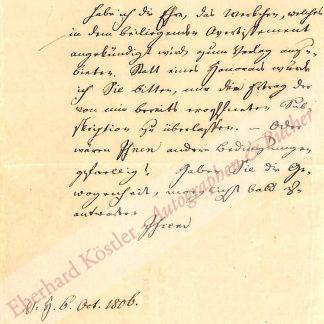 habe ich die Ehre, das Werkchen, welches
in dem beiliegenden Avertissement
angekündigt wird, zum Verlag anzu-
bieten. Statt eines Honorars würde
ich Sie bitten, mir den Ertrag der
von mir bereits eröffneten Sub-
skription zu überlassen. — Oder
wären Ihnen andere Bedingungen
gefällig? Haben Sie die Ge-
wogenheit, möglichst bald zu
antworten
Ihrem
d. 6. Oct. 1806.
Eberhard Köstler, Autographen & Bücher